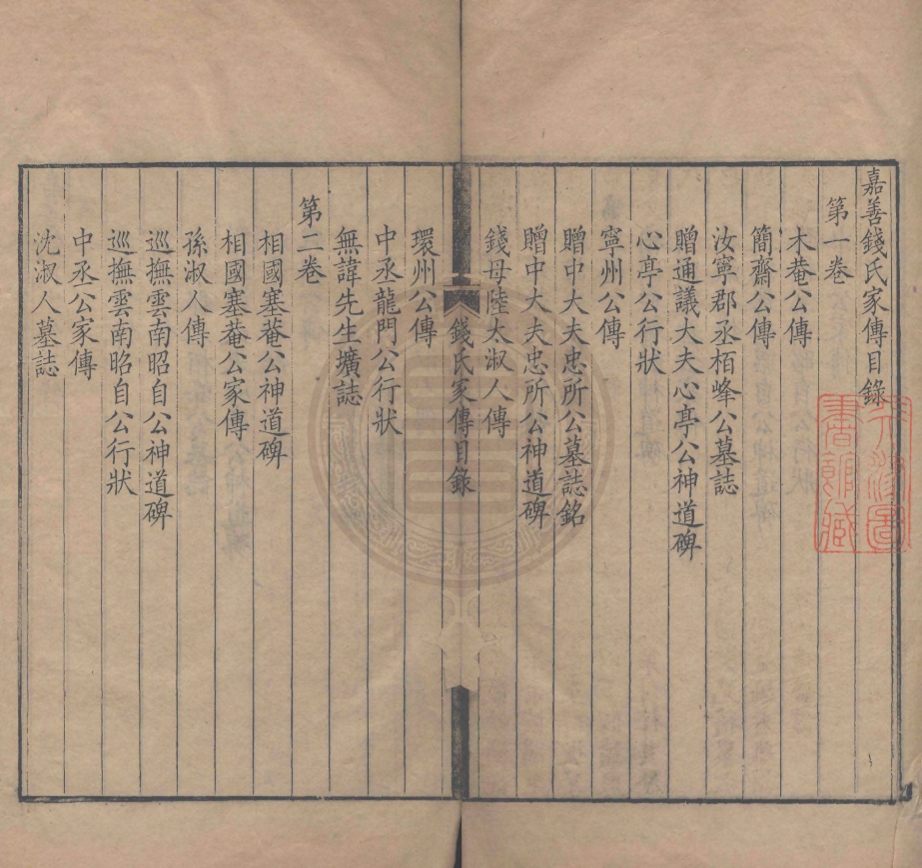 嘉善錢氏家傳目錄
第一卷
木菴公傳
簡齋公傳
汝寧郡丞栢峰公墓誌
贈通議大夫心亭公神道碑
心亭公行狀
寧州公傳
贈中大夫忠所公墓誌銘
贈中大夫忠所公神道碑
錢母陸太淑人傳
錢氏家傳目錄
環州公傳
中丞龍門公行狀
無諱先生壙誌
第二卷
相國塞菴公神道碑
相國塞菴公家傳
孫淑人傳
巡撫雲南昭自公神道碑
巡撫雲南昭自公行狀
中丞公家傳
沈淑人墓誌